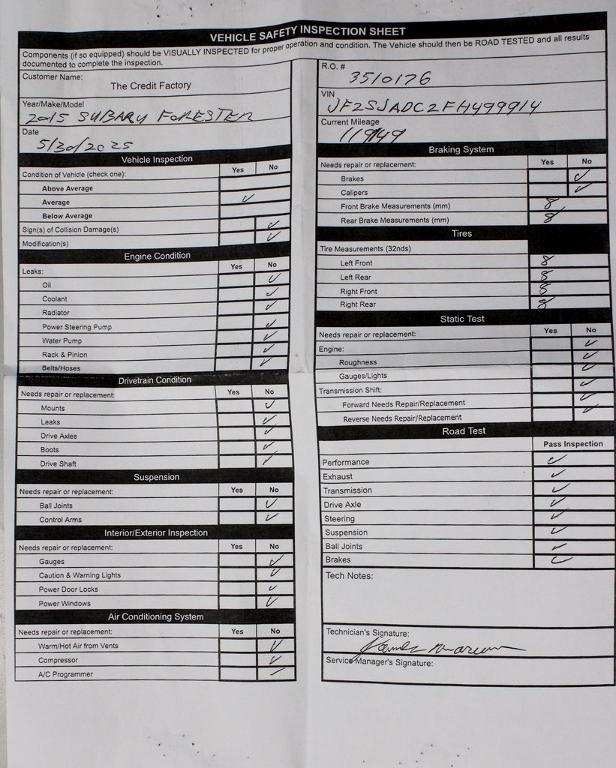 VEHICLE SAFETY INSPECTION SHEET
Components (if so equipped) should be VISUALLY INSPECTED for proper operation and condition. The Vehicle should then be ROAD TESTED and all results
documented to complete the inspection.
Customer Name:
The Credit Factory
Year/Make/Model
2015 SUBARU FORESTER
Date
5/30/2025
Vehicle Inspection
Condition of Vehicle (check one): Yes No
Above Average
Average ✓
Below Average
Sign(s) of Collision Damage(s) ✓
Modification(s) ✓
Engine Condition
Leaks: Yes No
Oil ✓
Coolant ✓
Radiator ✓
Power Steering Pump ✓
Water Pump ✓
Rack & Pinion ✓
Belts/Hoses ✓
Drivetrain Condition
Needs repair or replacement: Yes No
Mounts ✓
Leaks ✓
Drive Axles ✓
Boots ✓
Drive Shaft ✓
Suspension
Needs repair or replacement: Yes No
Ball Joints ✓
Control Arms ✓
Interior/Exterior Inspection
Needs repair or replacement: Yes No
Gauges ✓
Caution & Warning Lights ✓
Power Door Locks ✓
Power Windows ✓
Air Conditioning System
Needs repair or replacement: Yes No
Warm/Hot Air from Vents ✓
Compressor ✓
A/C Programmer ✓
R.O. #
3510176
VIN
JF2SJADC2FH499914
Current Mileage
Braking System
Needs repair or replacement: Yes No
Brakes ✓
Calipers ✓
Front Brake Measurements (mm) 8
Rear Brake Measurements (mm) 8
Tires
Tire Measurements (32nds)
Left Front 8
Left Rear 8
Right Front 8
Right Rear 8
Static Test
Needs repair or replacement: Yes No
Engine: ✓
Roughness ✓
Gauges/Lights ✓
Transmission Shift: ✓
Forward Needs Repair/Replacement ✓
Reverse Needs Repair/Replacement ✓
Road Test
Pass Inspection
Performance ✓
Exhaust ✓
Transmission ✓
Drive Axle ✓
Steering ✓
Suspension ✓
Ball Joints ✓
Brakes ✓
Tech Notes:
Technician's Signature:
Service Manager's Signature: